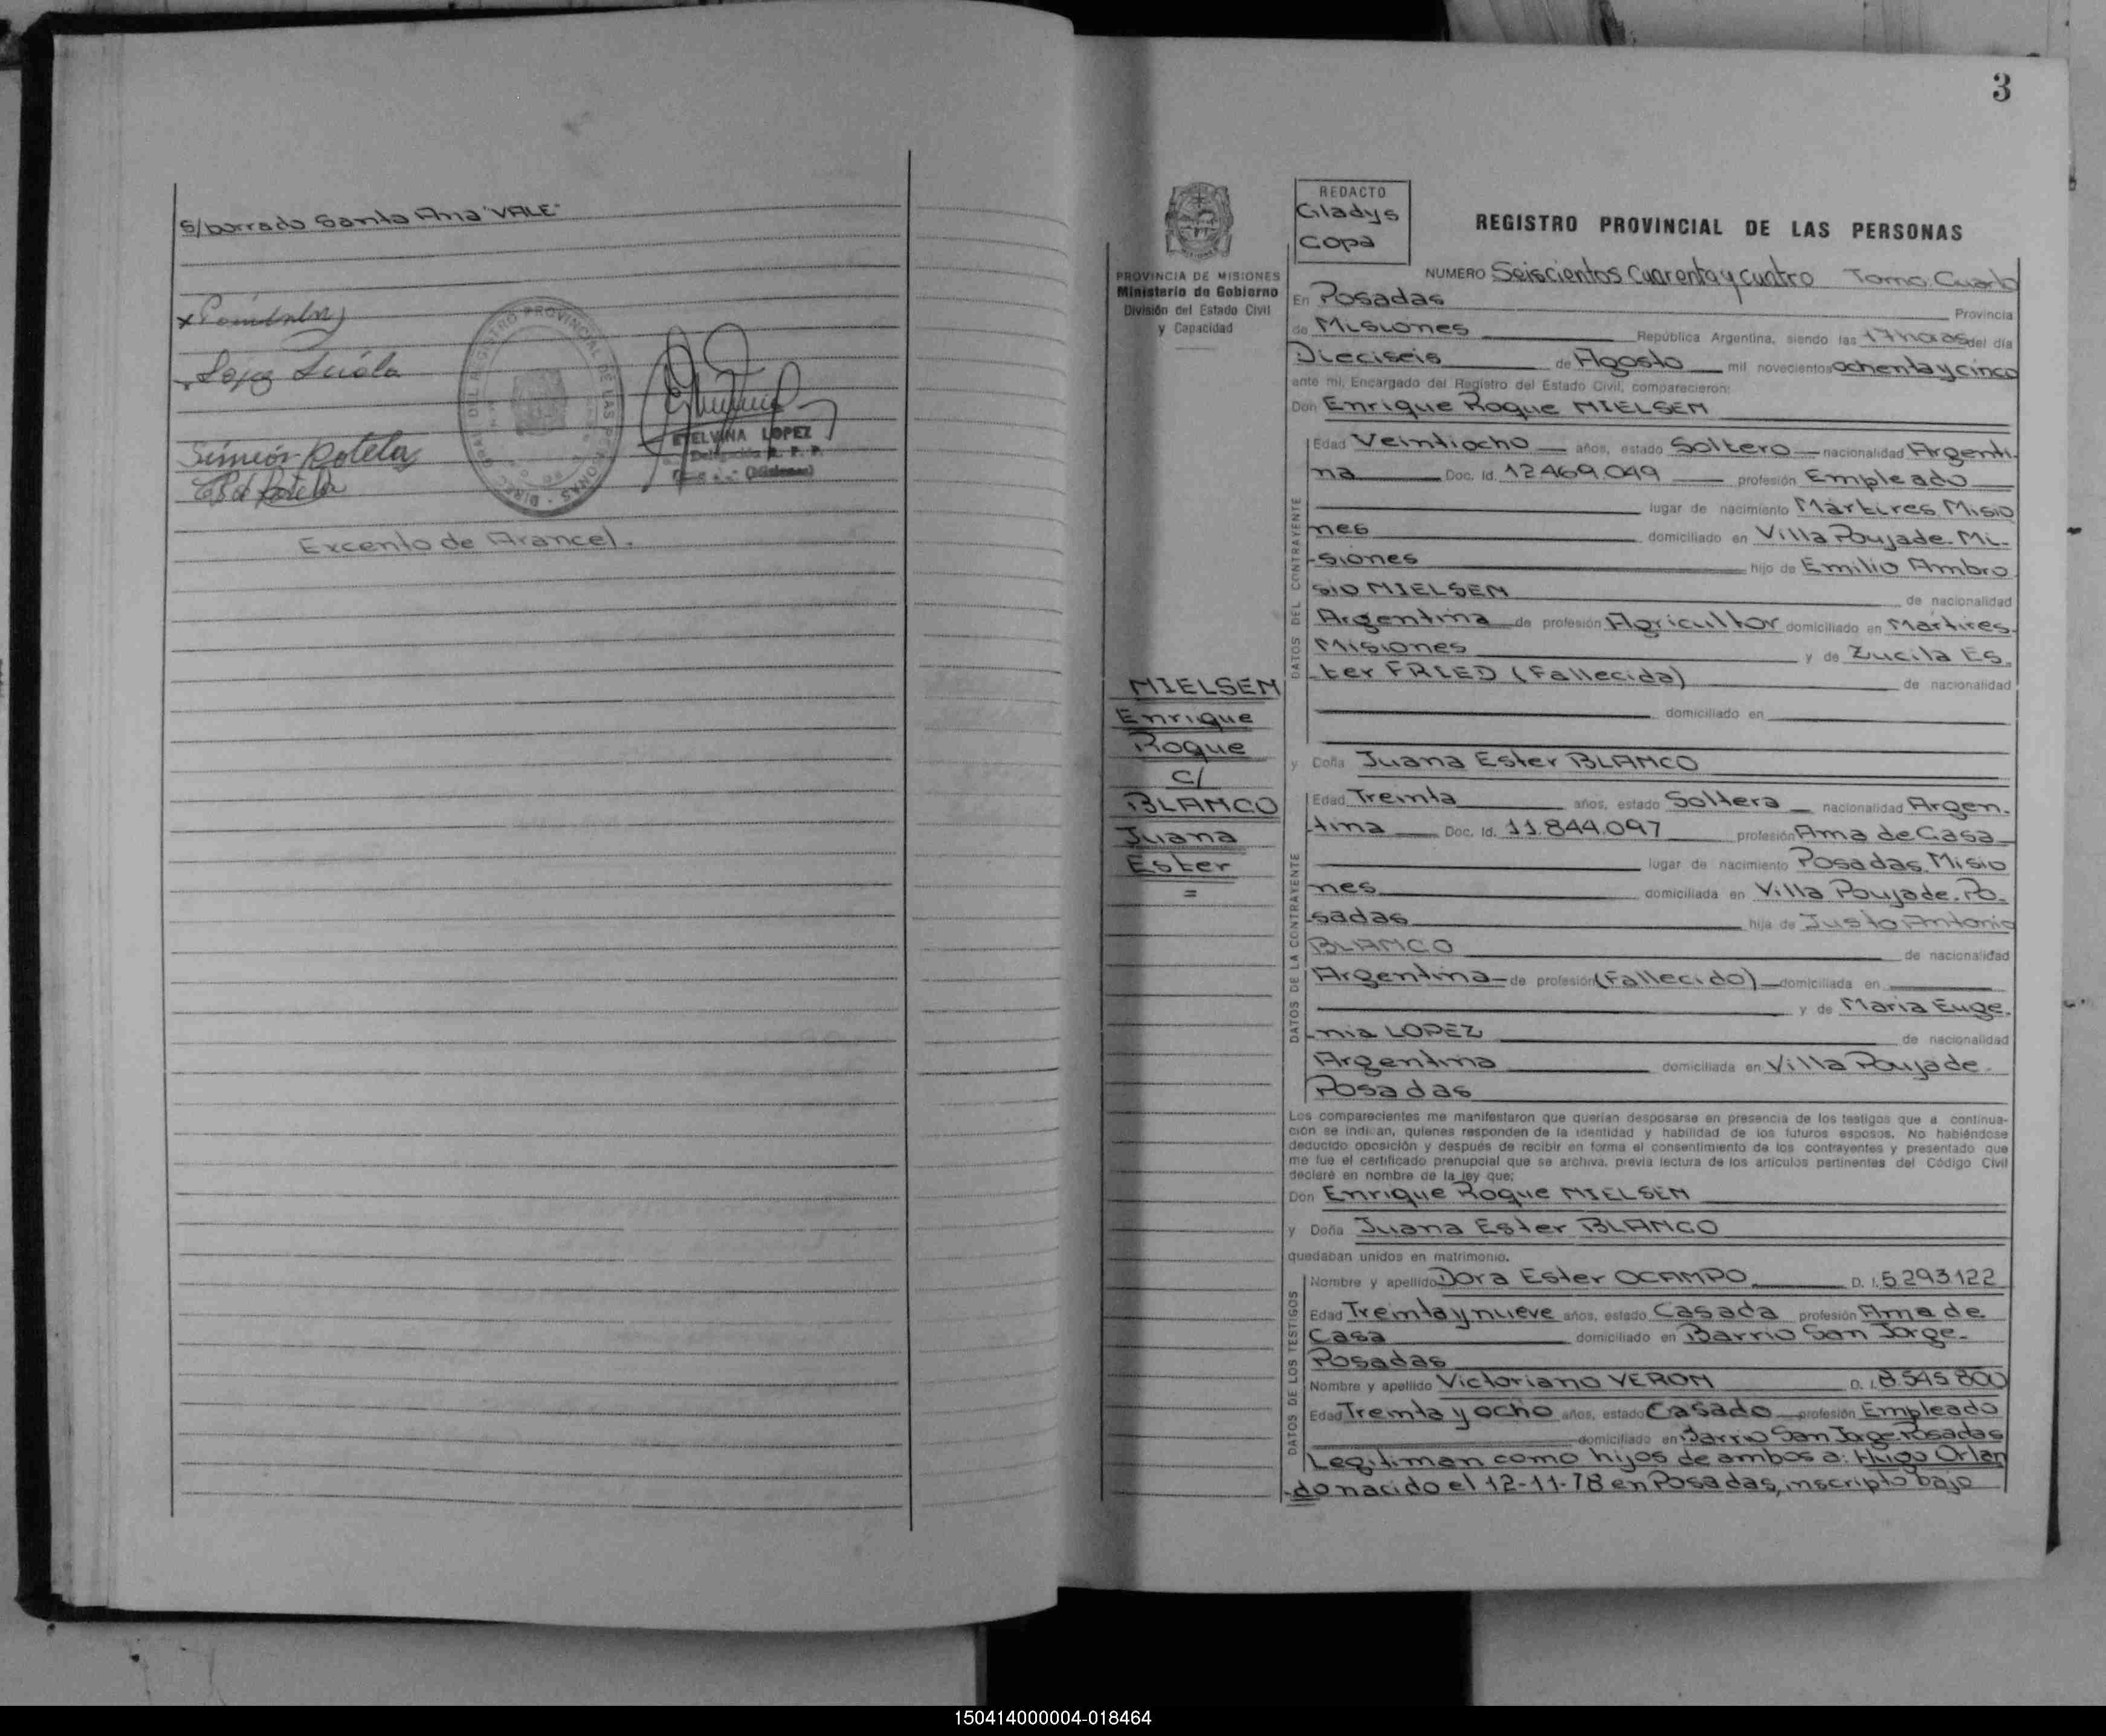 s/borrado Santa Ana "VALE"
Simeón Rotela
DIREC. GRAL. DEL REGISTRO PROVINCIAL DE LAS PERSONAS
ETELVINA LOPEZ
Delegación R. P. P.
(Misiones)
Excento de Arancel.
3
PROVINCIA DE MISIONES
Ministerio de Gobierno
División del Estado Civil
y Capacidad
REDACTO
Gladys
Copa
REGISTRO PROVINCIAL DE LAS PERSONAS
NUMERO Seiscientos Cuarenta y cuatro Tomo: Cuarto
En Posadas Provincia
de Misiones República Argentina, siendo las 17 horas del día
Dieciseis de Agosto mil novecientos ochenta y cinco
ante mi, Encargado del Registro del Estado Civil, comparecieron:
Don Enrique Roque NIELSEN
DATOS DEL CONTRAYENTE
Edad Veintiocho años, estado Soltero nacionalidad Argenti-
na Doc. Id. 12.469.049 profesión Empleado
lugar de nacimiento Mártires Misio
nes domiciliado en Villa Poujade. Mi-
-siones hijo de Emilio Ambro
sio NIELSEN de nacionalidad
Argentina de profesión Agricultor domiciliado en Mártires.
Misiones y de Zucila Es.
-ter FRIED (Fallecida) de nacionalidad
domiciliado en
NIELSEN
Enrique
Roque
c/
BLANCO
Juana
Ester
=
y Doña Juana Ester BLANCO
DATOS DE LA CONTRAYENTE
Edad Treinta años, estado Soltera nacionalidad Argen.
-tina Doc. Id. 11.844.097 profesión Ama de Casa
lugar de nacimiento Posadas Misio
nes domiciliada en Villa Poujade. Po-
-sadas hija de Justo Antonio
BLANCO de nacionalidad
Argentina de profesión (Fallecido) domiciliada en
y de María Euge.
-nia LOPEZ de nacionalidad
Argentina domiciliada en Villa Poujade.
Posadas
Los comparecientes me manifestaron que querían desposarse en presencia de los testigos que a continua-
ción se indican, quienes responden de la identidad y habilidad de los futuros esposos. No habiéndose
deducido oposición y después de recibir en forma el consentimiento de los contrayentes y presentado que
me fue el certificado prenupcial que se archiva, previa lectura de los artículos pertinentes del Código Civil
declaré en nombre de la ley que;
Don Enrique Roque NIELSEN
y Doña Juana Ester BLANCO
quedaban unidos en matrimonio.
DATOS DE LOS TESTIGOS
Nombre y apellido Dora Ester OCAMPO D. I. 5.293.122
Edad Treinta y nueve años, estado Casada profesión Ama de
Casa domiciliado en Barrio San Jorge-
Posadas
Nombre y apellido Victoriano VERON D. I. 8.545.800
Edad Treinta y ocho años, estado Casado profesión Empleado
domiciliado en Barrio San Jorge Posadas
Legitiman como hijos de ambos a: Hugo Orlan
-do nacido el 12-11-78 en Posadas, inscripto bajo
150414000004-018464